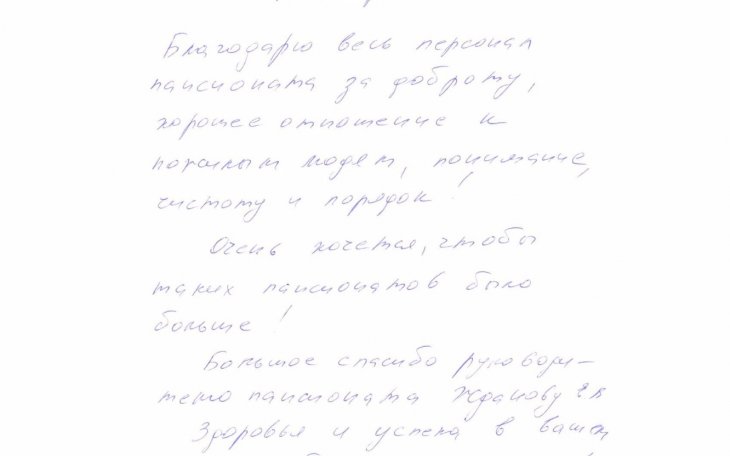 Благодарю весь персонал
пансионата за доброту,
хорошее отношение к
пожилым людям, понимание,
чистоту и порядок!
Очень хочется, чтобы
таких пансионатов было
больше!
Большое спасибо руководи-
телю пансионата Жданову
Здоровья и успеха в вашем